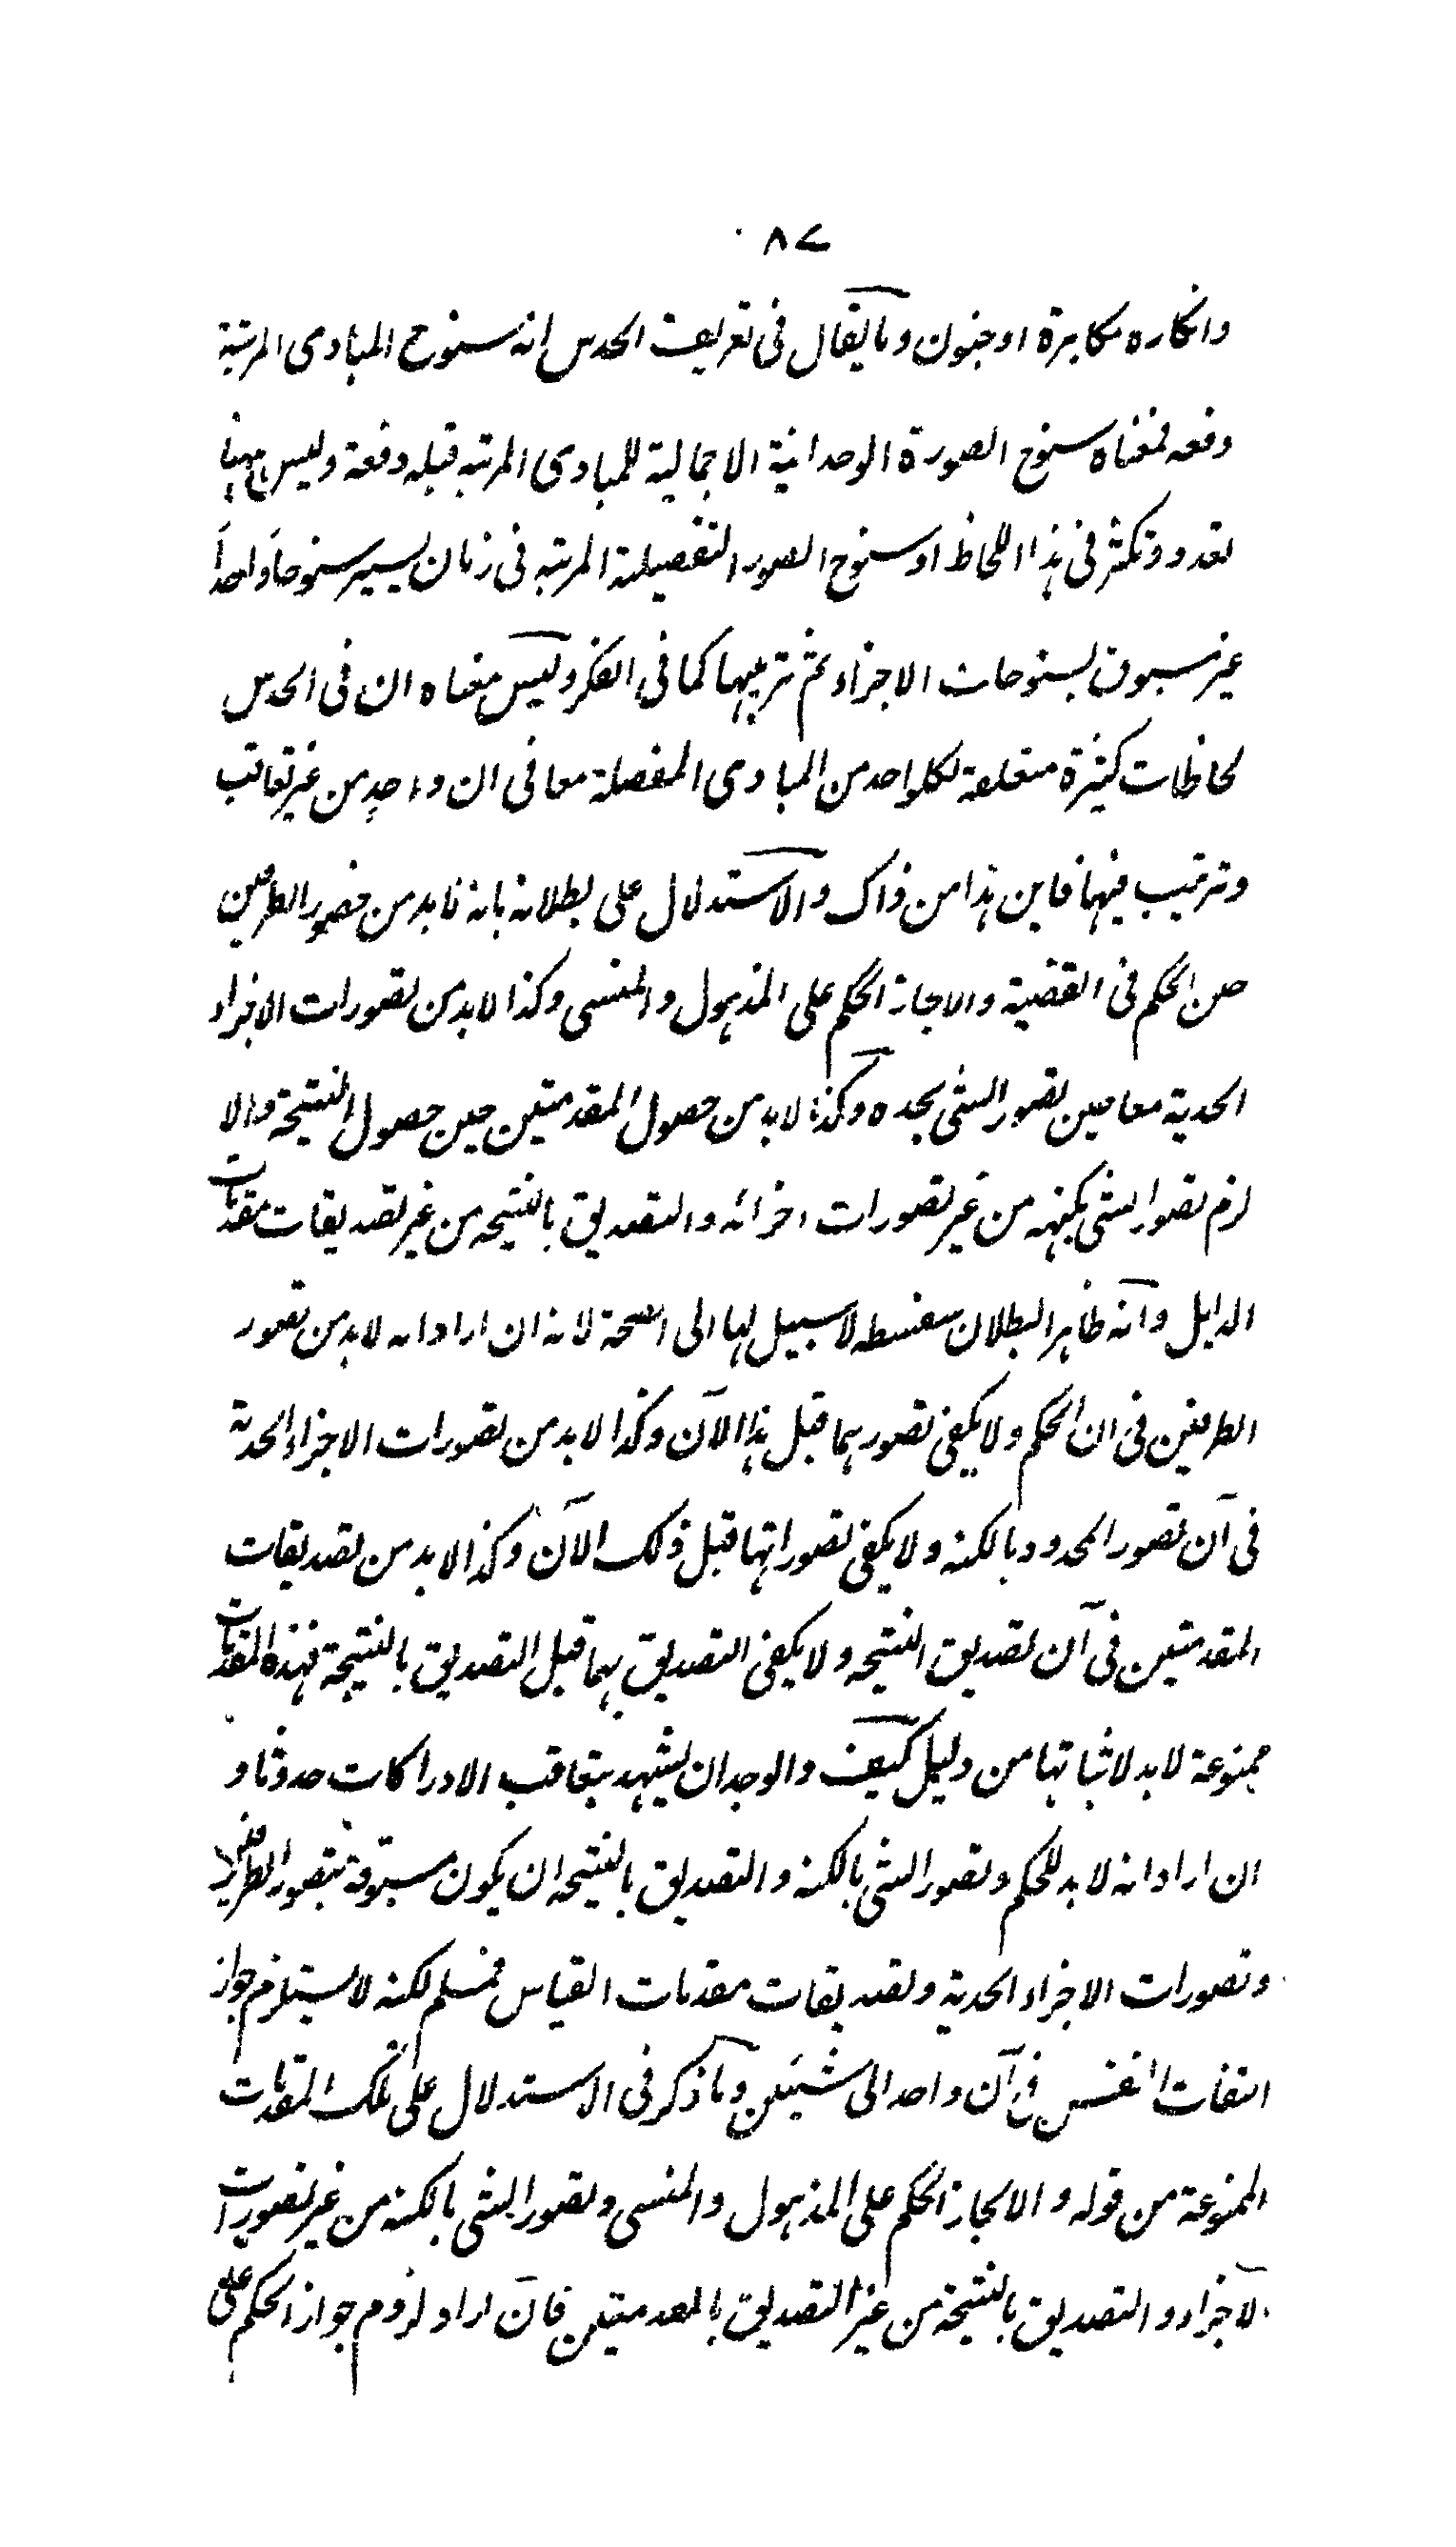 ٨٧
وانكاره مكابرة او جنون وما يقال فى تعريف الحدس انه سنوح المبادى المرتبة
دفعه فمعناه سنوح الصورة الوحدانية الاجمالية للمبادى المرتبه قبله دفعة وليس فيها
تعدد وتكثر فى هذا اللحاظ او سنوح الصور التفصيلية المرتبه فى زمان يسير سنوحاً واحداً
غير مسبوق بسنوحات الاجزاء ثم ترتيبها كما فى الفكر وليس معناه ان فى الحدس
لحاظات كثيرة متعلقة لكلواحد من المبادى المفصلة معا فى ان واحد من غير تعاقب
وترتيب فيها فاين هذا من ذاك والاستدلال على بطلانه بانه لابد من حضور الطرفين
حين الحكم فى القضية والا جاز الحكم على المذهول والمنسى وكذا لابد من تصورات الاجزاء
الحدية معا حين تصور الشى بحده وكذا لابد من حصول المقدمتين حين حصول النتيجة والا
لزم تصور الشى بكنهه من غير تصورات اجزائه والتصديق بالنتيجه من غير تصديقات مقدمات
الدليل وانه ظاهر البطلان سفسطه لا سبيل لها الى الصحة لانه ان اراد انه لابد من تصور
الطرفين فى ان الحكم ولا يكفى تصورهما قبل هذا الآن وكذا لابد من تصورات الاجزاء الحدية
فى آن تصور المحدود بالكنه ولا يكفى تصوراتها قبل ذلك الآن وكذا لابد من تصديقات
المقدمتين فى آن تصديق النتيجه ولا يكفى التصديق بهما قبل التصديق بالنتيجة فهذه المقدمات
ممنوعة لابد لاثباتها من دليل كيف والوجدان يشهد بتعاقب الادراكات حدوثا و
ان اراد انه لابد للحكم وتصور الشى بالكنه والتصديق بالنتيجه ان يكون مسبوقة بتصور الطرفين
وتصورات الاجزاء الحدية وتصديقات مقدمات القياس فمسلم لكنه لا يستلزم جواز
التفات النفس فى آن واحد الى شيئين وما ذكر فى الاستدلال على تلك المقدمات
الممنوعة من قوله والا لجاز الحكم على المذهول والمنسى وتصور الشى بالكنه من غير تصورات
الاجزاء والتصديق بالنتيجة من غير التصديق بالمقدمتين فان اراد لزوم جواز الحكم على